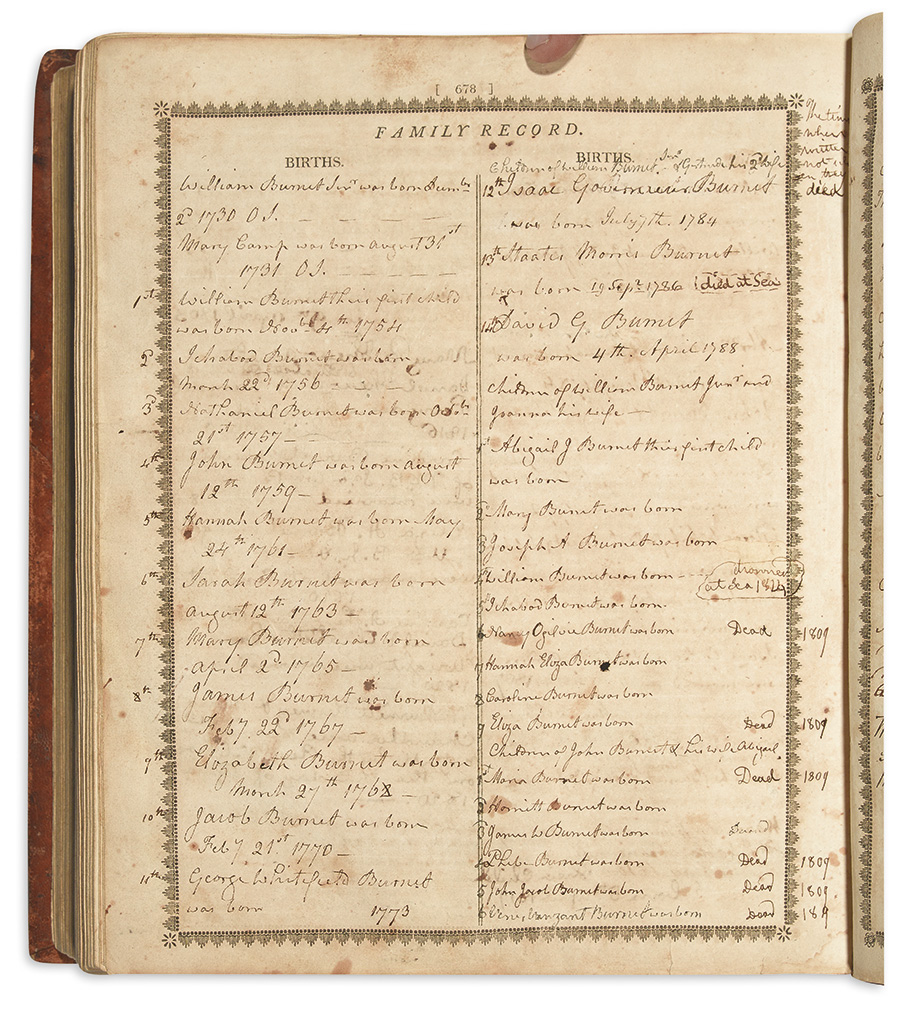 [ 678 ]
FAMILY RECORD.
BIRTHS.
William Burnet Senr was born Decembr
2d 1730 O.S.
Mary Camp was born august 31st
1731 O.S.
1st William Burnet their first child
was born Novbr 4th 1754
2d Ichabod Burnet was born
March 22d 1756
3d Nathaniel Burnet was born Octobr
21st 1757
4th John Burnet was born august
12th 1759
5th Hannah Burnet was born May
24th 1761
6th Sarah Burnet was born
august 12th 1763
7th Mary Burnet was born
april 2d 1765
8th James Burnet was born
Feby. 22d 1767
9th Elizabeth Burnet was born
March 27th 1768
10th Jacob Burnet was born
Feby 21st 1770
11th George Whitefield Burnet
was born 1773
BIRTHS.
Children of William Burnet Senr & Gertrude his 2d Wife
12th Isaac Gouverneur Burnet
was born July 7th. 1784
13th Staates Morris Burnet
was born 19 Sept. 1786 died at Sea
14th David G. Burnet
was born 4th. April 1788
Children of William Burnet Junr and
Joanna his wife
1st Abigail J Burnet their first child
was born
2 Mary Burnet was born
3 Joseph A Burnet was born
4 William Burnet was born drowned
at Sea
5 Ichabod Burnet was born
6 Nancy Ogilvie Burnet was born Dead 1809
7 Hannah Eliza Burnet was born
8 Caroline Burnet was born
9 Eliza Burnet was born Dead 1809
Children of John Burnet & his wife Abigail
1st Maria Burnet was born Dead 1809
2 Harriett Burnet was born
3 James W Burnet was born
4 Phebe Burnet was born Dead 1809
5 John Jacob Burnet was born Dead 1809
6 Vanzant Burnet was born Dead
The
when
written
not
in
dead